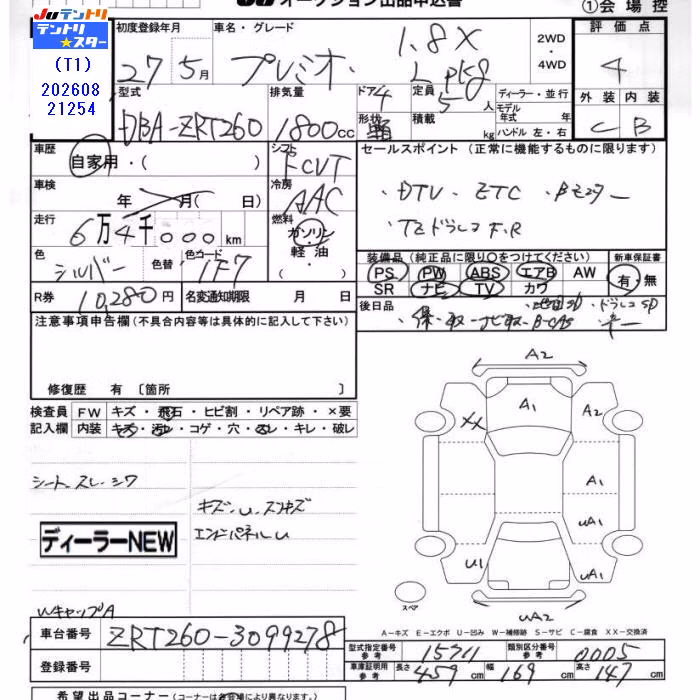 JU オークション出品申込書 ①会場控
JUテントリ
テントリ★スター
(T1)
202608
21254
初度登録年月 車名・グレード 2WD・4WD 評価点
27年5月 プレミオ 1.8X Lpkg 4
型式 排気量 ドア 4 定員 5人 ディーラー・並行 外装 内装
DBA-ZRT260 1800cc 形状 積載 kg モデル年式 年 ハンドル 左・右 C B
車歴 シフト セールスポイント (正常に機能するものに限ります)
自家用・( ) FCVT
車検 年 月( 日) 冷房 AAC ・DTV・ETC・
走行 6万4千000km 燃料 ガソリン・軽油・( ) ・TEドラレコF.R
色 色替 色コード 装備品 (純正品に限り○をつけてください) 新車保証書
シルバー 1F7 PS PW ABS エアB AW 有・無
SR ナビ TV カワ
R券 10,280円 名変通知期限 月 日 後日品
注意事項申告欄 (不具合内容等は具体的に記入して下さい) ・保・取・ナビ取・B-CAS
修復歴 有 〔箇所 〕
検査員記入欄 FW キズ・飛石・ヒビ割・リペア跡・×要
内装 キズ・汚レ・コゲ・穴・スレ・キレ・破レ
A2
A1
A2
XX
A1
uA1
U1
uA1
uA2
スペア
シート スレ・シワ
キズ・u・スリキズ
エンドパネルu
ディーラーNEW
WキャップA
A−キズ E−エクボ U−凹み W−補修跡 S−サビ C−腐食 XX−交換済
車台番号 ZRT260-3099278
登録番号
型式指定番号 参考 15711 類別区分番号 参考 0005
車庫証明用 参考 長さ 459cm 幅 169cm 高さ 147cm
希望出品コーナー (コーナーは各会場により異なります。)